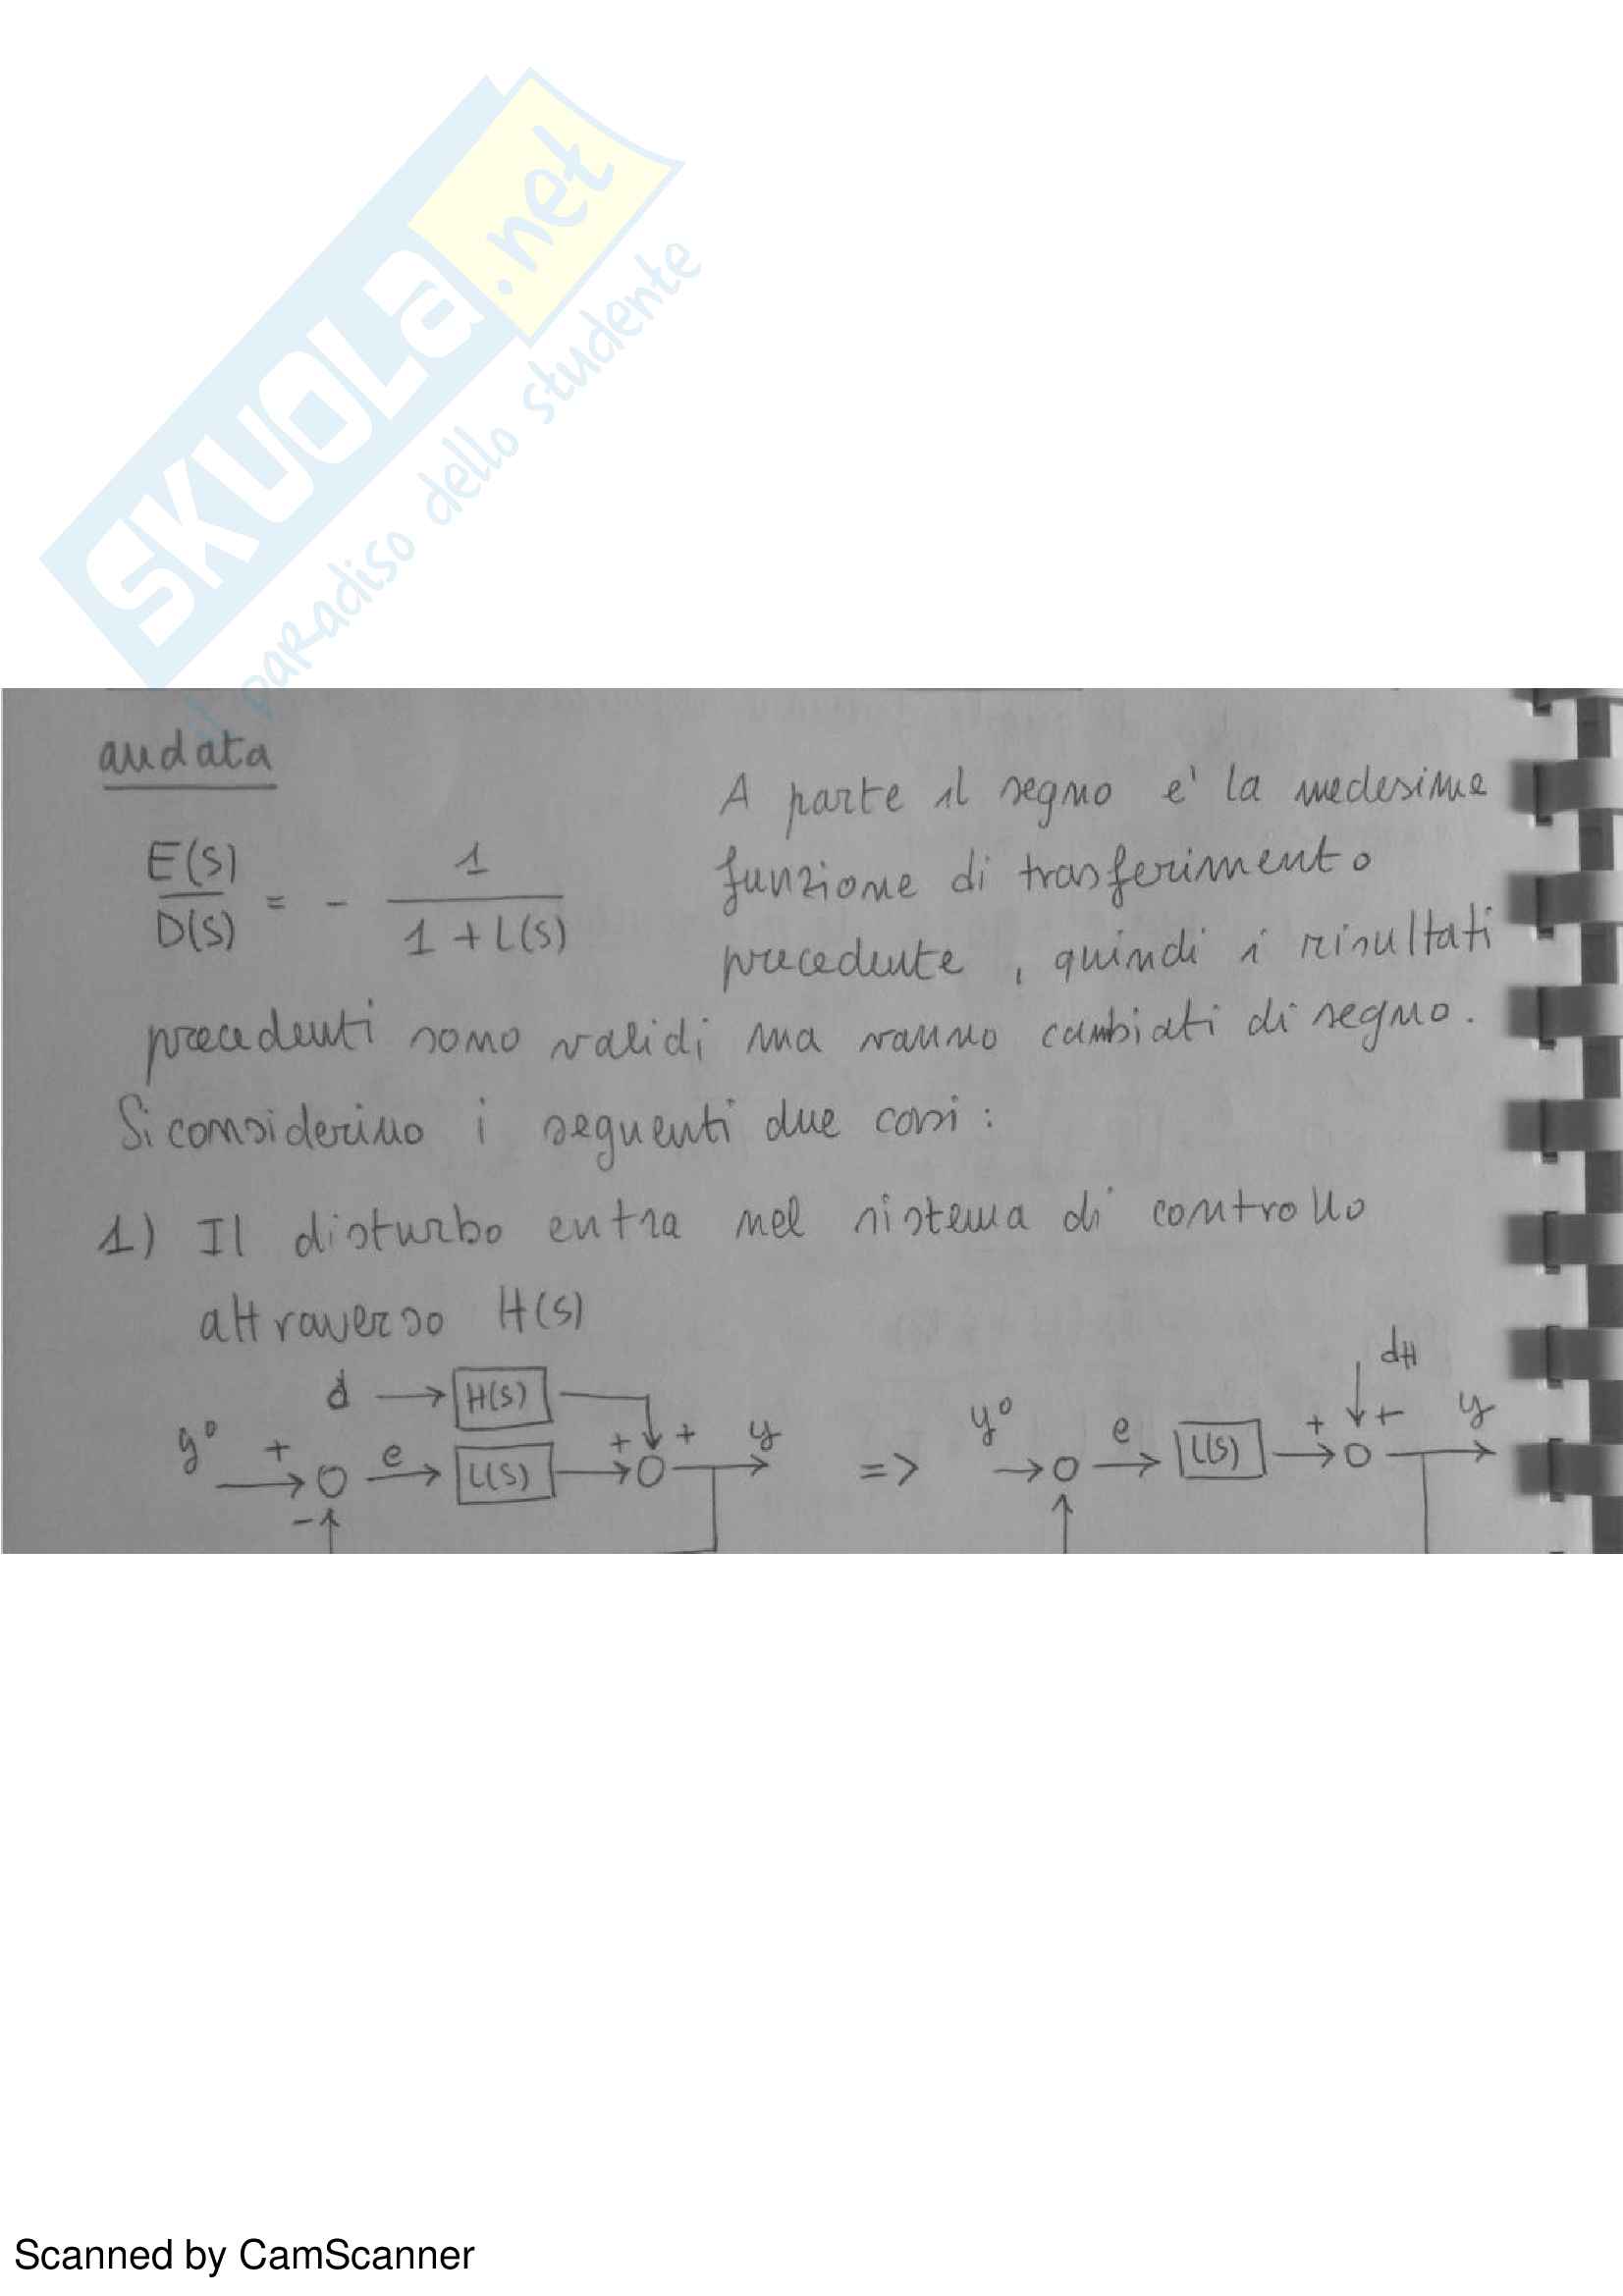 SKUOLA.net
il paradiso dello studente
andata
E(S)/D(S) = - 1/(1+L(S))
A parte il segno e' la medesima
funzione di trasferimento
precedente, quindi i risultati
precedenti sono validi ma vanno cambiati di segno.
Si considerino i seguenti due casi:
1) Il disturbo entra nel sistema di controllo
attraverso H(S)
d H(S) dH
y° + e L(S) + + y => y° e L(S) + + y
-
Scanned by CamScanner